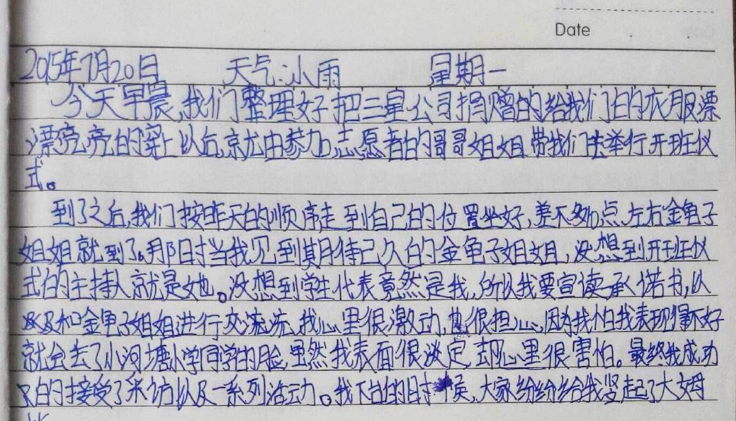 Date
2015年7月20日 天气:小雨 星期一
今天早晨,我们整理好把三星公司捐赠的给我们的衣服漂
漂亮亮的穿上以后,就由参加志愿者的哥哥姐姐带我们去举行开班仪
式。
到了之后,我们按昨天的顺序走到自己的位置坐好,差不多10点左右金龟子
姐姐就到了。那时当我见到期待已久的金龟子姐姐,没想到开班仪
式的主持人就是她。没想到学生代表竟然是我,所以我要宣读承诺书,以
及和金龟子姐姐进行交流,我心里很激动,也很担心,因为我怕我表现得不好
就会丢了小河塘小学同学的脸,虽然我表面很淡定,却心里很害怕。最终我成功
的接受了采访以及一系列活动。我下台的时候,大家纷纷给我竖起了大姆